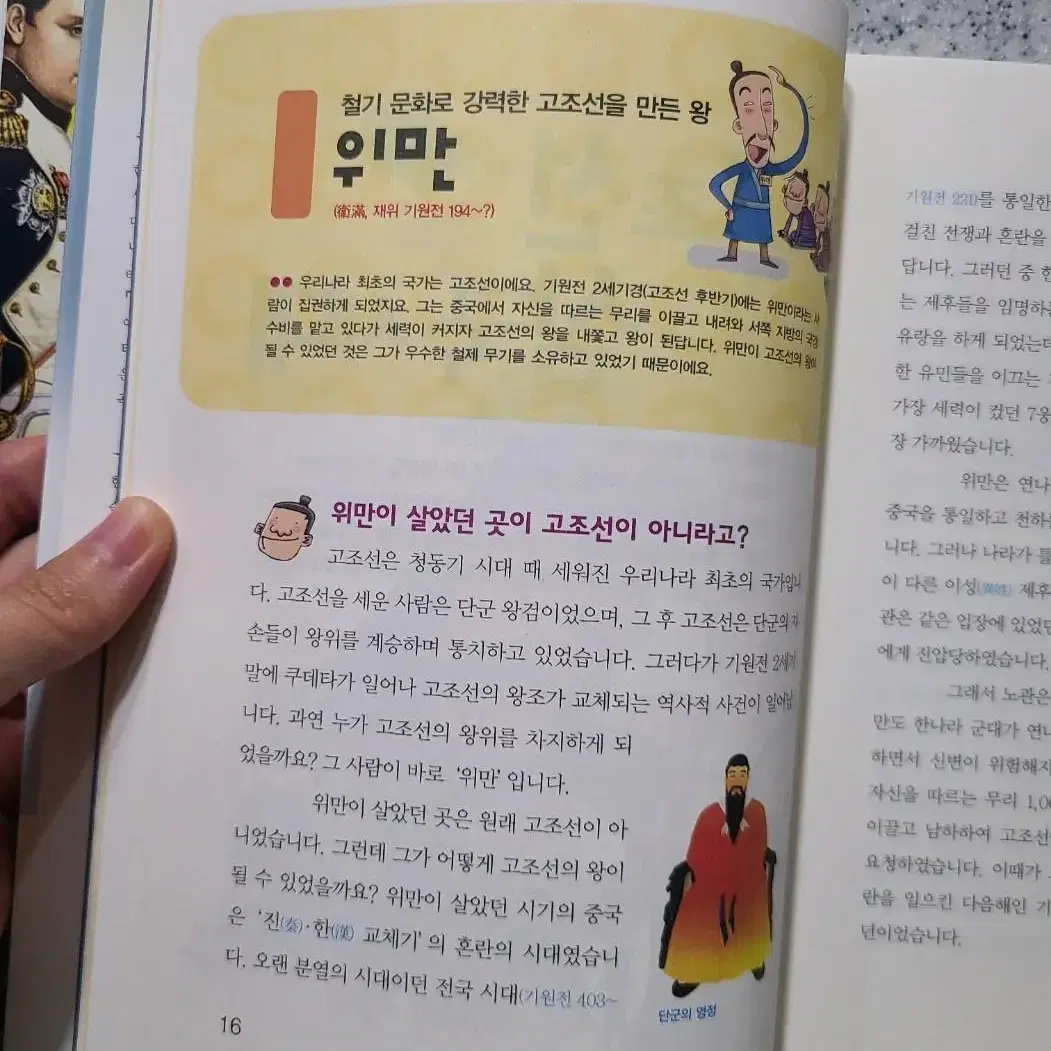 철기 문화로 강력한 고조선을 만든 왕
위만
(衛滿, 재위 기원전 194~?)
●● 우리나라 최초의 국가는 고조선이에요. 기원전 2세기경(고조선 후반기)에는 위만이라는 사
람이 집권하게 되었지요. 그는 중국에서 자신을 따르는 무리를 이끌고 내려와 서쪽 지방의 국경
수비를 맡고 있다가 세력이 커지자 고조선의 왕을 내쫓고 왕이 된답니다. 위만이 고조선의 왕이
될 수 있었던 것은 그가 우수한 철제 무기를 소유하고 있었기 때문이에요.
위만이 살았던 곳이 고조선이 아니라고?
고조선은 청동기 시대 때 세워진 우리나라 최초의 국가입니
다. 고조선을 세운 사람은 단군 왕검이었으며, 그 후 고조선은 단군의 자
손들이 왕위를 계승하며 통치하고 있었습니다. 그러다가 기원전 2세기
말에 쿠데타가 일어나 고조선의 왕조가 교체되는 역사적 사건이 일어납
니다. 과연 누가 고조선의 왕위를 차지하게 되
었을까요? 그 사람이 바로 '위만' 입니다.
위만이 살았던 곳은 원래 고조선이 아
니었습니다. 그런데 그가 어떻게 고조선의 왕이
될 수 있었을까요? 위만이 살았던 시기의 중국
은 '진(秦)·한(漢) 교체기' 의 혼란의 시대였습니
다. 오랜 분열의 시대이던 전국 시대(기원전 403~
단군의 영정
16
기원전 221)를 통일한
걸친 전쟁과 혼란을
답니다. 그러던 중 한
는 제후들을 임명하
유랑을 하게 되었는데
한 유민들을 이끄는
가장 세력이 컸던 7웅
장 가까웠습니다.
위만은 연나
중국을 통일하고 천하
니다. 그러나 나라가 틀
이 다른 이성(異姓) 제후
관은 같은 입장에 있었던
에게 진압당하였습니다.
그래서 노관은
만도 한나라 군대가 연나
하면서 신변이 위험해지
자신을 따르는 무리 1,0
이끌고 남하하여 고조선
요청하였습니다. 이때가
란을 일으킨 다음해인 기
년이었습니다.